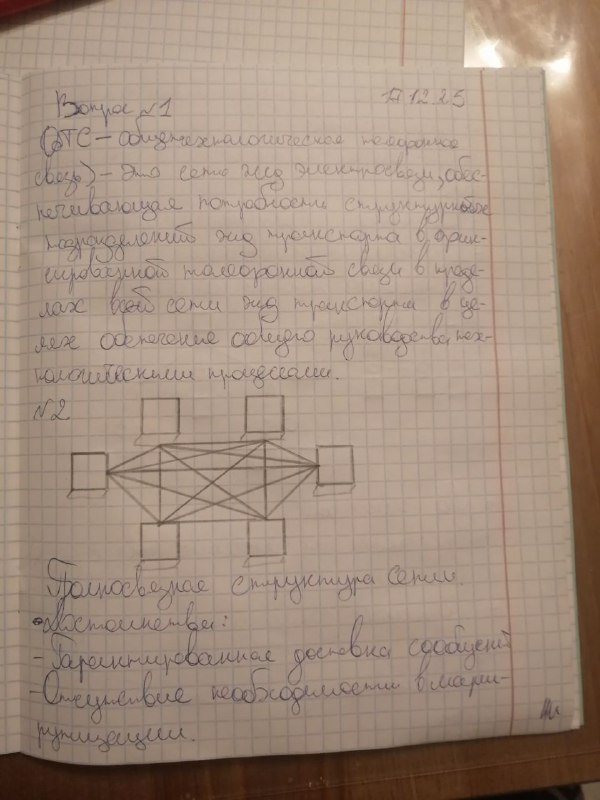 Вопрос №1
17.12.25
(ОТС – общетехнологическое телефонное
связь) – это сеть жд электросвязи, обес-
печивающая потребности структурных
подразделений жд транспорта в
телефонной связи в преде-
лах всей сети жд транспорта в це-
лях обспечения общего руководства тех-
нологическими процессами.
№2
Полносвязная структура сети.
Достоинства:
- Гарантированная доставка сообщений
- Отсутствие необходимости в марш-
рутизации.